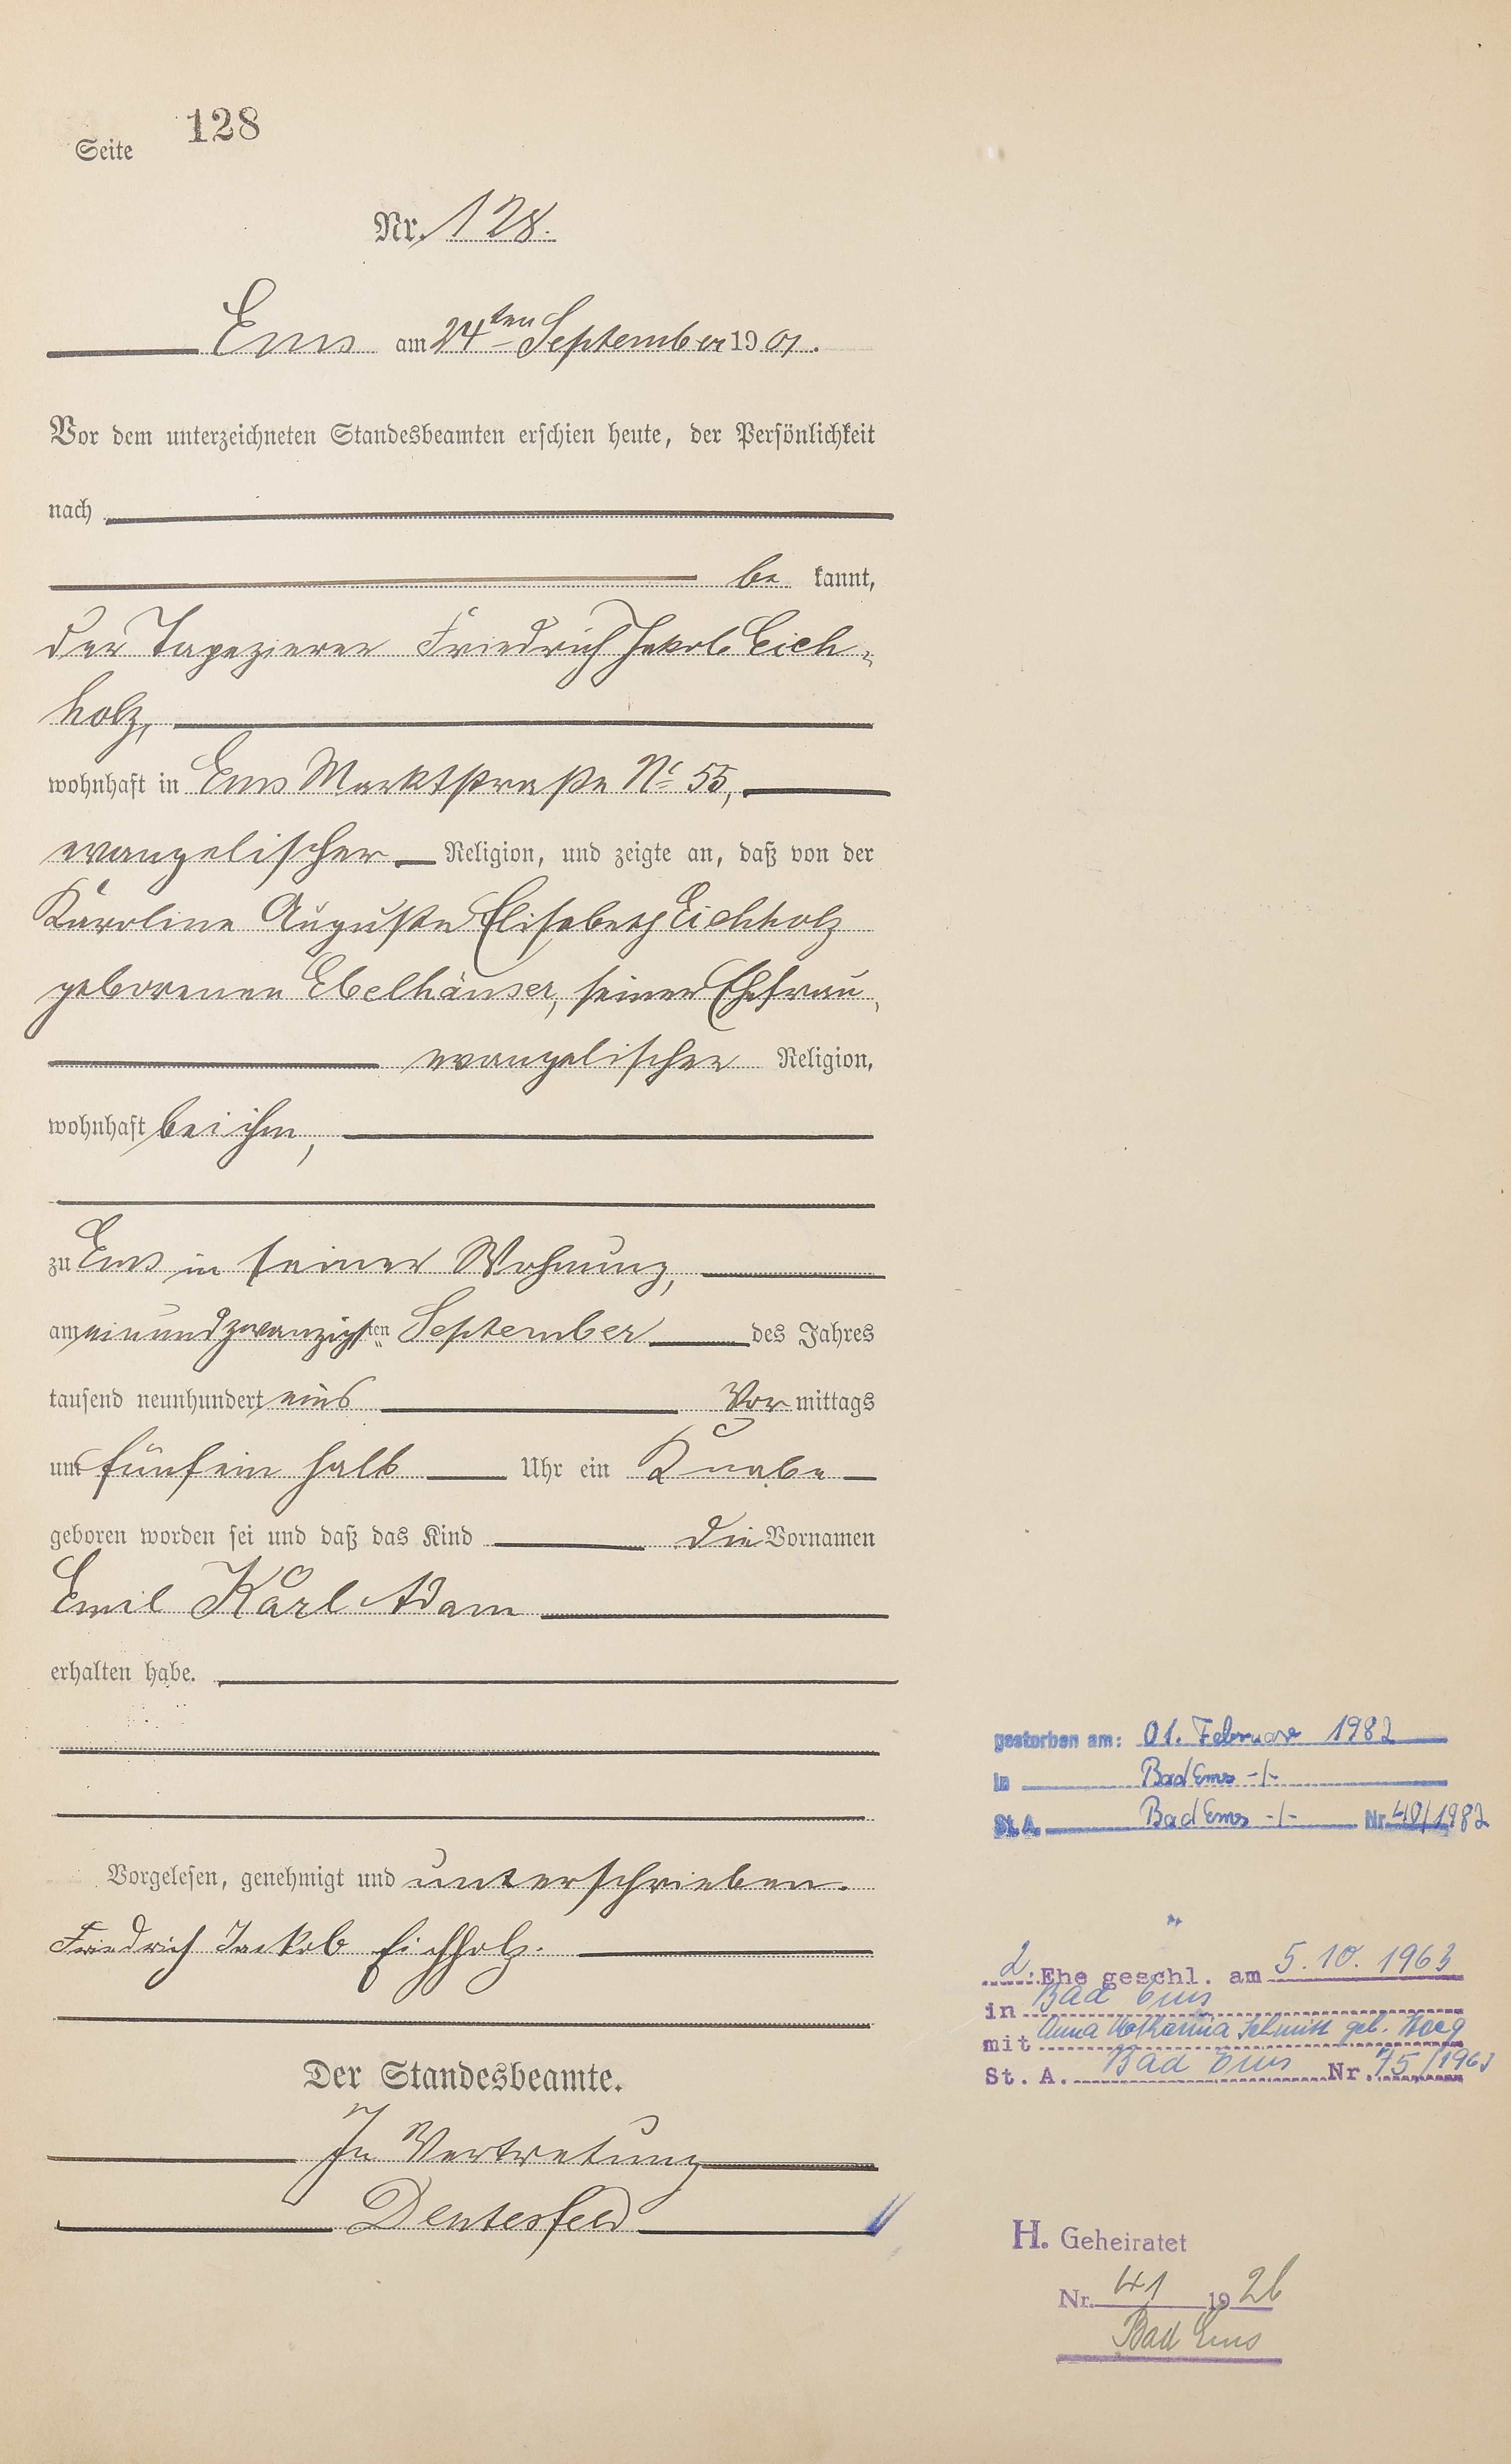 Seite 128
Nr. 128.
Ems am 24ten September 1901.
Vor dem unterzeichneten Standesbeamten erschien heute, der Persönlichkeit
nach
be kannt,
der Tapezierer Friedrich Jakob Eich-
holz,
wohnhaft in Ems Marktstraße No 55,
evangelischer Religion, und zeigte an, daß von der
Karoline Auguste Elisabeth Eichholz
geborenen Ebelhäuser, seiner Ehefrau,
evangelischer Religion,
wohnhaft bei ihm,
zu Ems in seiner Wohnung,
am einundzwanzigsten September des Jahres
tausend neunhundert eins Vor mittags
um fünf ein halb Uhr ein Knabe
geboren worden sei und daß das Kind die Vornamen
Emil Karl Adam
erhalten habe.
Vorgelesen, genehmigt und unterschrieben.
Friedrich Jackob Eichholz.
Der Standesbeamte.
In Vertretung
gestorben am: 01. Februar 1982
in Bad Ems -/-
St. A. Bad Ems -/- Nr. 40/1982
2. Ehe geschl. am 5.10.1963
in Bad Ems
mit Anna Katharina Schmitt geb.
St. A. Bad Ems Nr. 75/1963
H. Geheiratet
Nr. 41 1926
Bad Ems